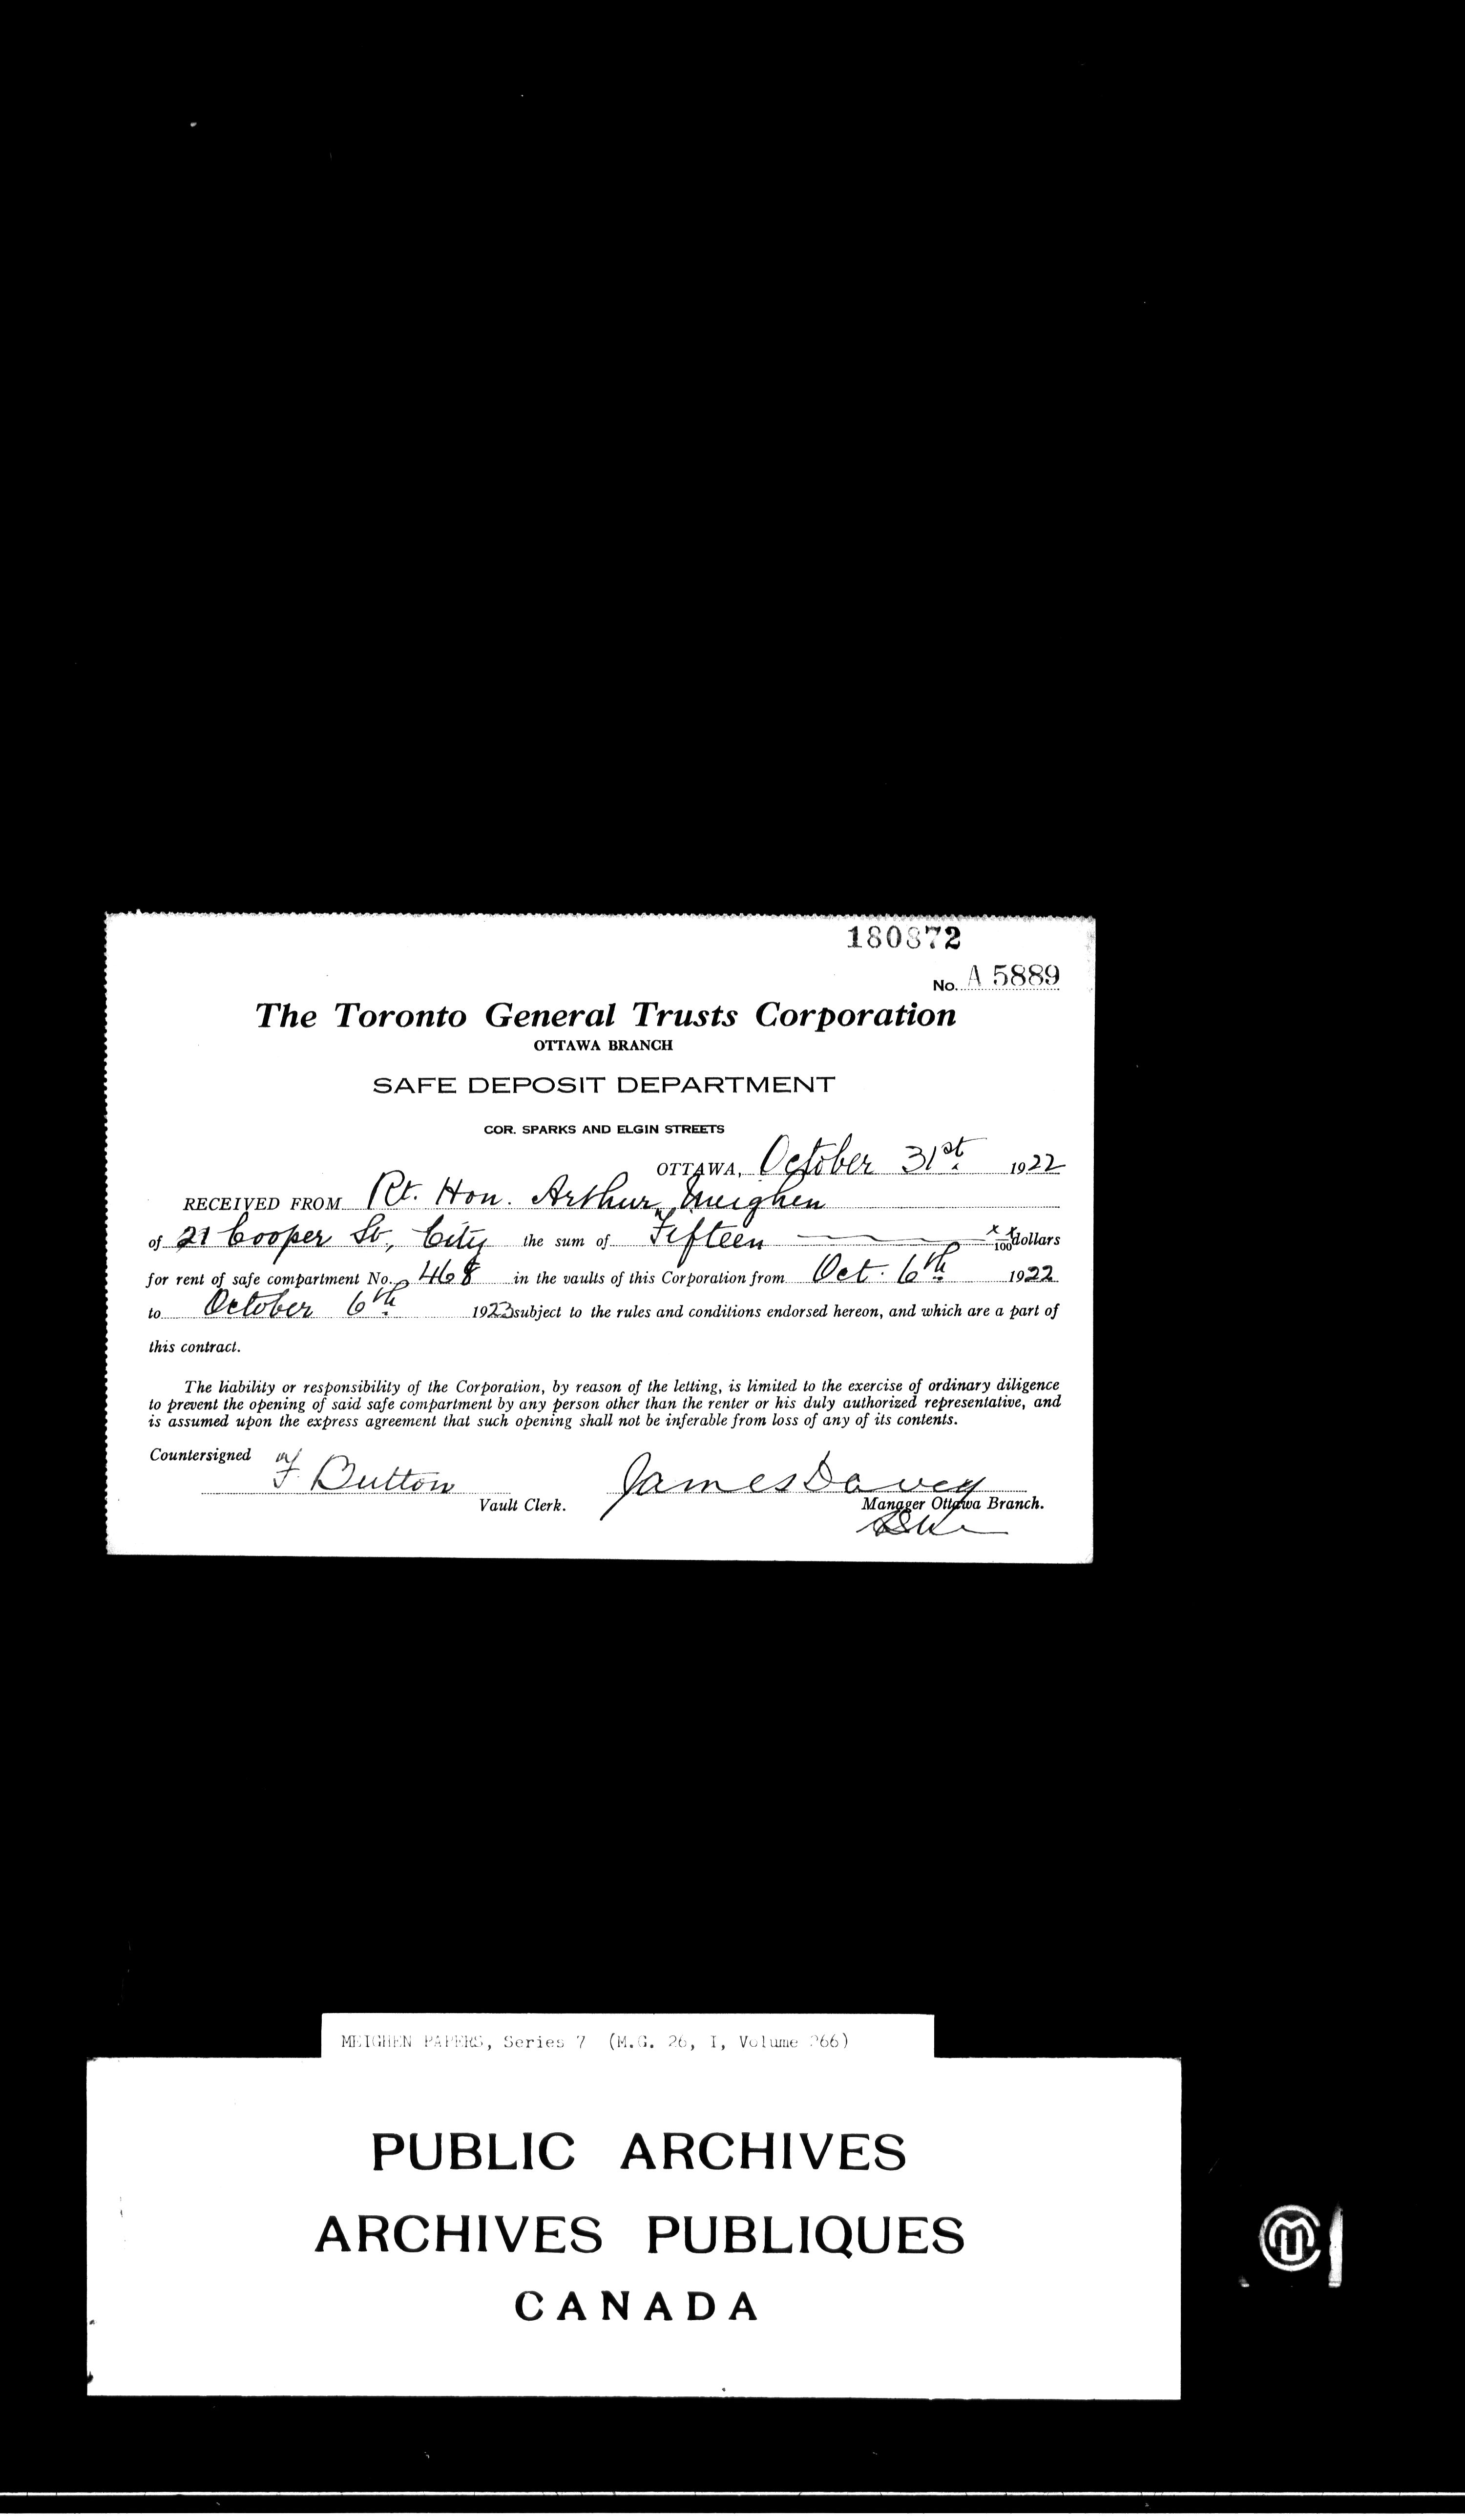 180872
No. A 5889
The Toronto General Trusts Corporation
OTTAWA BRANCH
SAFE DEPOSIT DEPARTMENT
COR. SPARKS AND ELGIN STREETS
OTTAWA, October 31st. 1922
RECEIVED FROM Rt. Hon. Arthur Meighen
of 21 Cooper St, City the sum of Fifteen x x/100 dollars
for rent of safe compartment No. 468 in the vaults of this Corporation from Oct. 6th 1922
to October 6th 1923 subject to the rules and conditions endorsed hereon, and which are a part of
this contract.
The liability or responsibility of the Corporation, by reason of the letting, is limited to the exercise of ordinary diligence
to prevent the opening of said safe compartment by any person other than the renter or his duly authorized representative, and
is assumed upon the express agreement that such opening shall not be inferable from loss of any of its contents.
Countersigned F. Button James Davey
Vault Clerk. Manager Ottawa Branch.
MEIGHEN PAPERS, Series 7 (M.G. 26, I, Volume 266)
PUBLIC ARCHIVES
ARCHIVES PUBLIQUES
CANADA